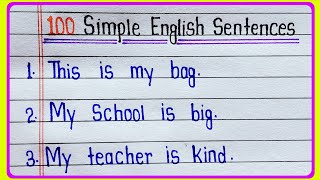 100 Simple English Sentences
1. This is my bag.
2. My School is big.
3. My teacher is kind.